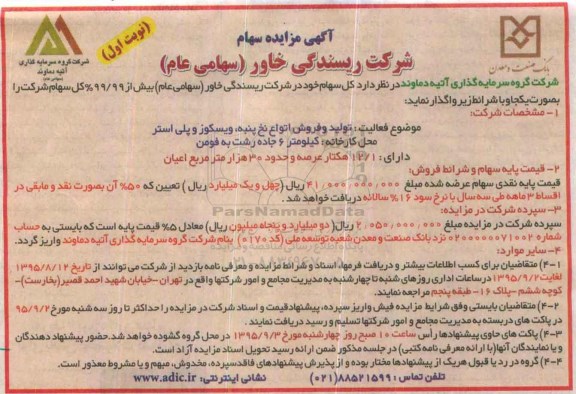 آگهی مزایده سهام
شرکت ریسندگی خاور (سهامی عام)
(نوبت اول)
شرکت گروه سرمایه گذاری
آتیه دماوند
(سهامی عام)
بانک صنعت و معدن
شرکت گروه سرمایه گذاری آتیه دماوند در نظر دارد کل سهام خود در شرکت ریسندگی خاور (سهامی عام) بیش از ۹۹/۹۹% کل سهام شرکت را
بصورت یکجا و با شرائط زیر واگذار نماید:
۱- مشخصات شرکت:
موضوع فعالیت: تولید و فروش انواع نخ پنبه، ویسکوز و پلی استر
محل کارخانه: کیلومتر ۶ جاده رشت به فومن
دارای: ۱۲/۱ هکتار عرصه و حدود ۳۰ هزار متر مربع اعیان
۲- قیمت پایه سهام و شرائط فروش:
قیمت پایه نقدی سهام عرضه شده مبلغ ۴۱/۰۰۰/۰۰۰/۰۰۰ ریال (چهل و یک میلیارد ریال) تعیین که ۵۰% آن بصورت نقد و مابقی در
اقساط ۳ ماهه طی سه سال با نرخ سود ۱۶% سالانه دریافت خواهد شد.
۳- سپرده شرکت در مزایده:
سپرده شرکت در مزایده مبلغ ۲/۰۵۰/۰۰۰/۰۰۰ ریال (دو میلیارد و پنجاه میلیون ریال) معادل ۵% قیمت پایه است که بایستی به حساب
شماره ۰۲۰۰۰۰۰۰۷۱۰۰۲ نزد بانک صنعت و معدن شعبه توسعه ملی (کد ۰۱۷۰) بنام شرکت گروه سرمایه گذاری آتیه دماوند واریز گردد.
۴- سایر موارد:
۴-۱) متقاضیان برای کسب اطلاعات بیشتر و دریافت فرمها، اسناد و شرائط مزایده و معرفی نامه بازدید از شرکت می توانند از تاریخ ۱۳۹۵/۸/۱۲
لغایت ۱۳۹۵/۹/۲ در ساعات اداری روزهای شنبه تا چهارشنبه به مدیریت مجامع و امور شرکتها واقع در تهران -خیابان شهید احمد قصیر (بخارست)-
کوچه ششم -پلاک ۱۶- طبقه پنجم مراجعه نمایند.
۴-۲) متقاضیان بایستی وفق شرایط مزایده فیش واریز سپرده، پیشنهاد قیمت و اسناد شرکت در مزایده را حداکثر تا روز سه شنبه مورخ ۹۵/۹/۲
در پاکت های دربسته به مدیریت مجامع و امور شرکتها تسلیم و رسید دریافت نمایند.
۴-۳) پاکت های حاوی پیشنهادها رأس ساعت ۱۰ صبح روز چهارشنبه مورخ ۱۳۹۵/۹/۳ در محل گروه گشوده خواهد شد. حضور پیشنهاد دهندگان
و یا نمایندگان آنها (با ارائه معرفی نامه کتبی) در جلسه مذکور ضمن ارائه رسید تحویل اسناد مزایده آزاد است.
۴-۴) گروه در رد یا قبول هریک از پیشنهادها مختار بوده و از پذیرش پیشنهادهای فاقد سپرده، مخدوش، مبهم و یا مشروط معذور است.
تلفن تماس: ۸۸۵۲۱۵۹۹ (۰۲۱) نشانی اینترنتی: www.adic.ir
ParsNamadData